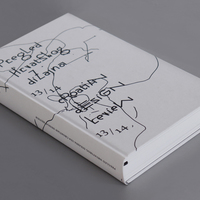 Pregled
Hrvatskog
dizajna
13/14
croatian
design
review
13/14.